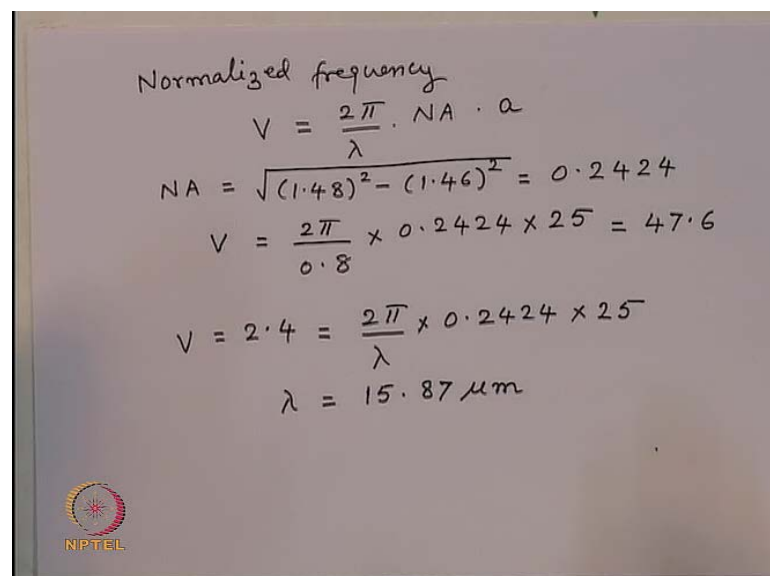 Normalized frequency
V = 2π/λ · NA · a
NA = √((1·48)² − (1·46)²) = 0·2424
V = 2π/0·8 × 0·2424 × 25 = 47·6
V = 2·4 = 2π/λ × 0·2424 × 25
λ = 15·87 μm
NPTEL